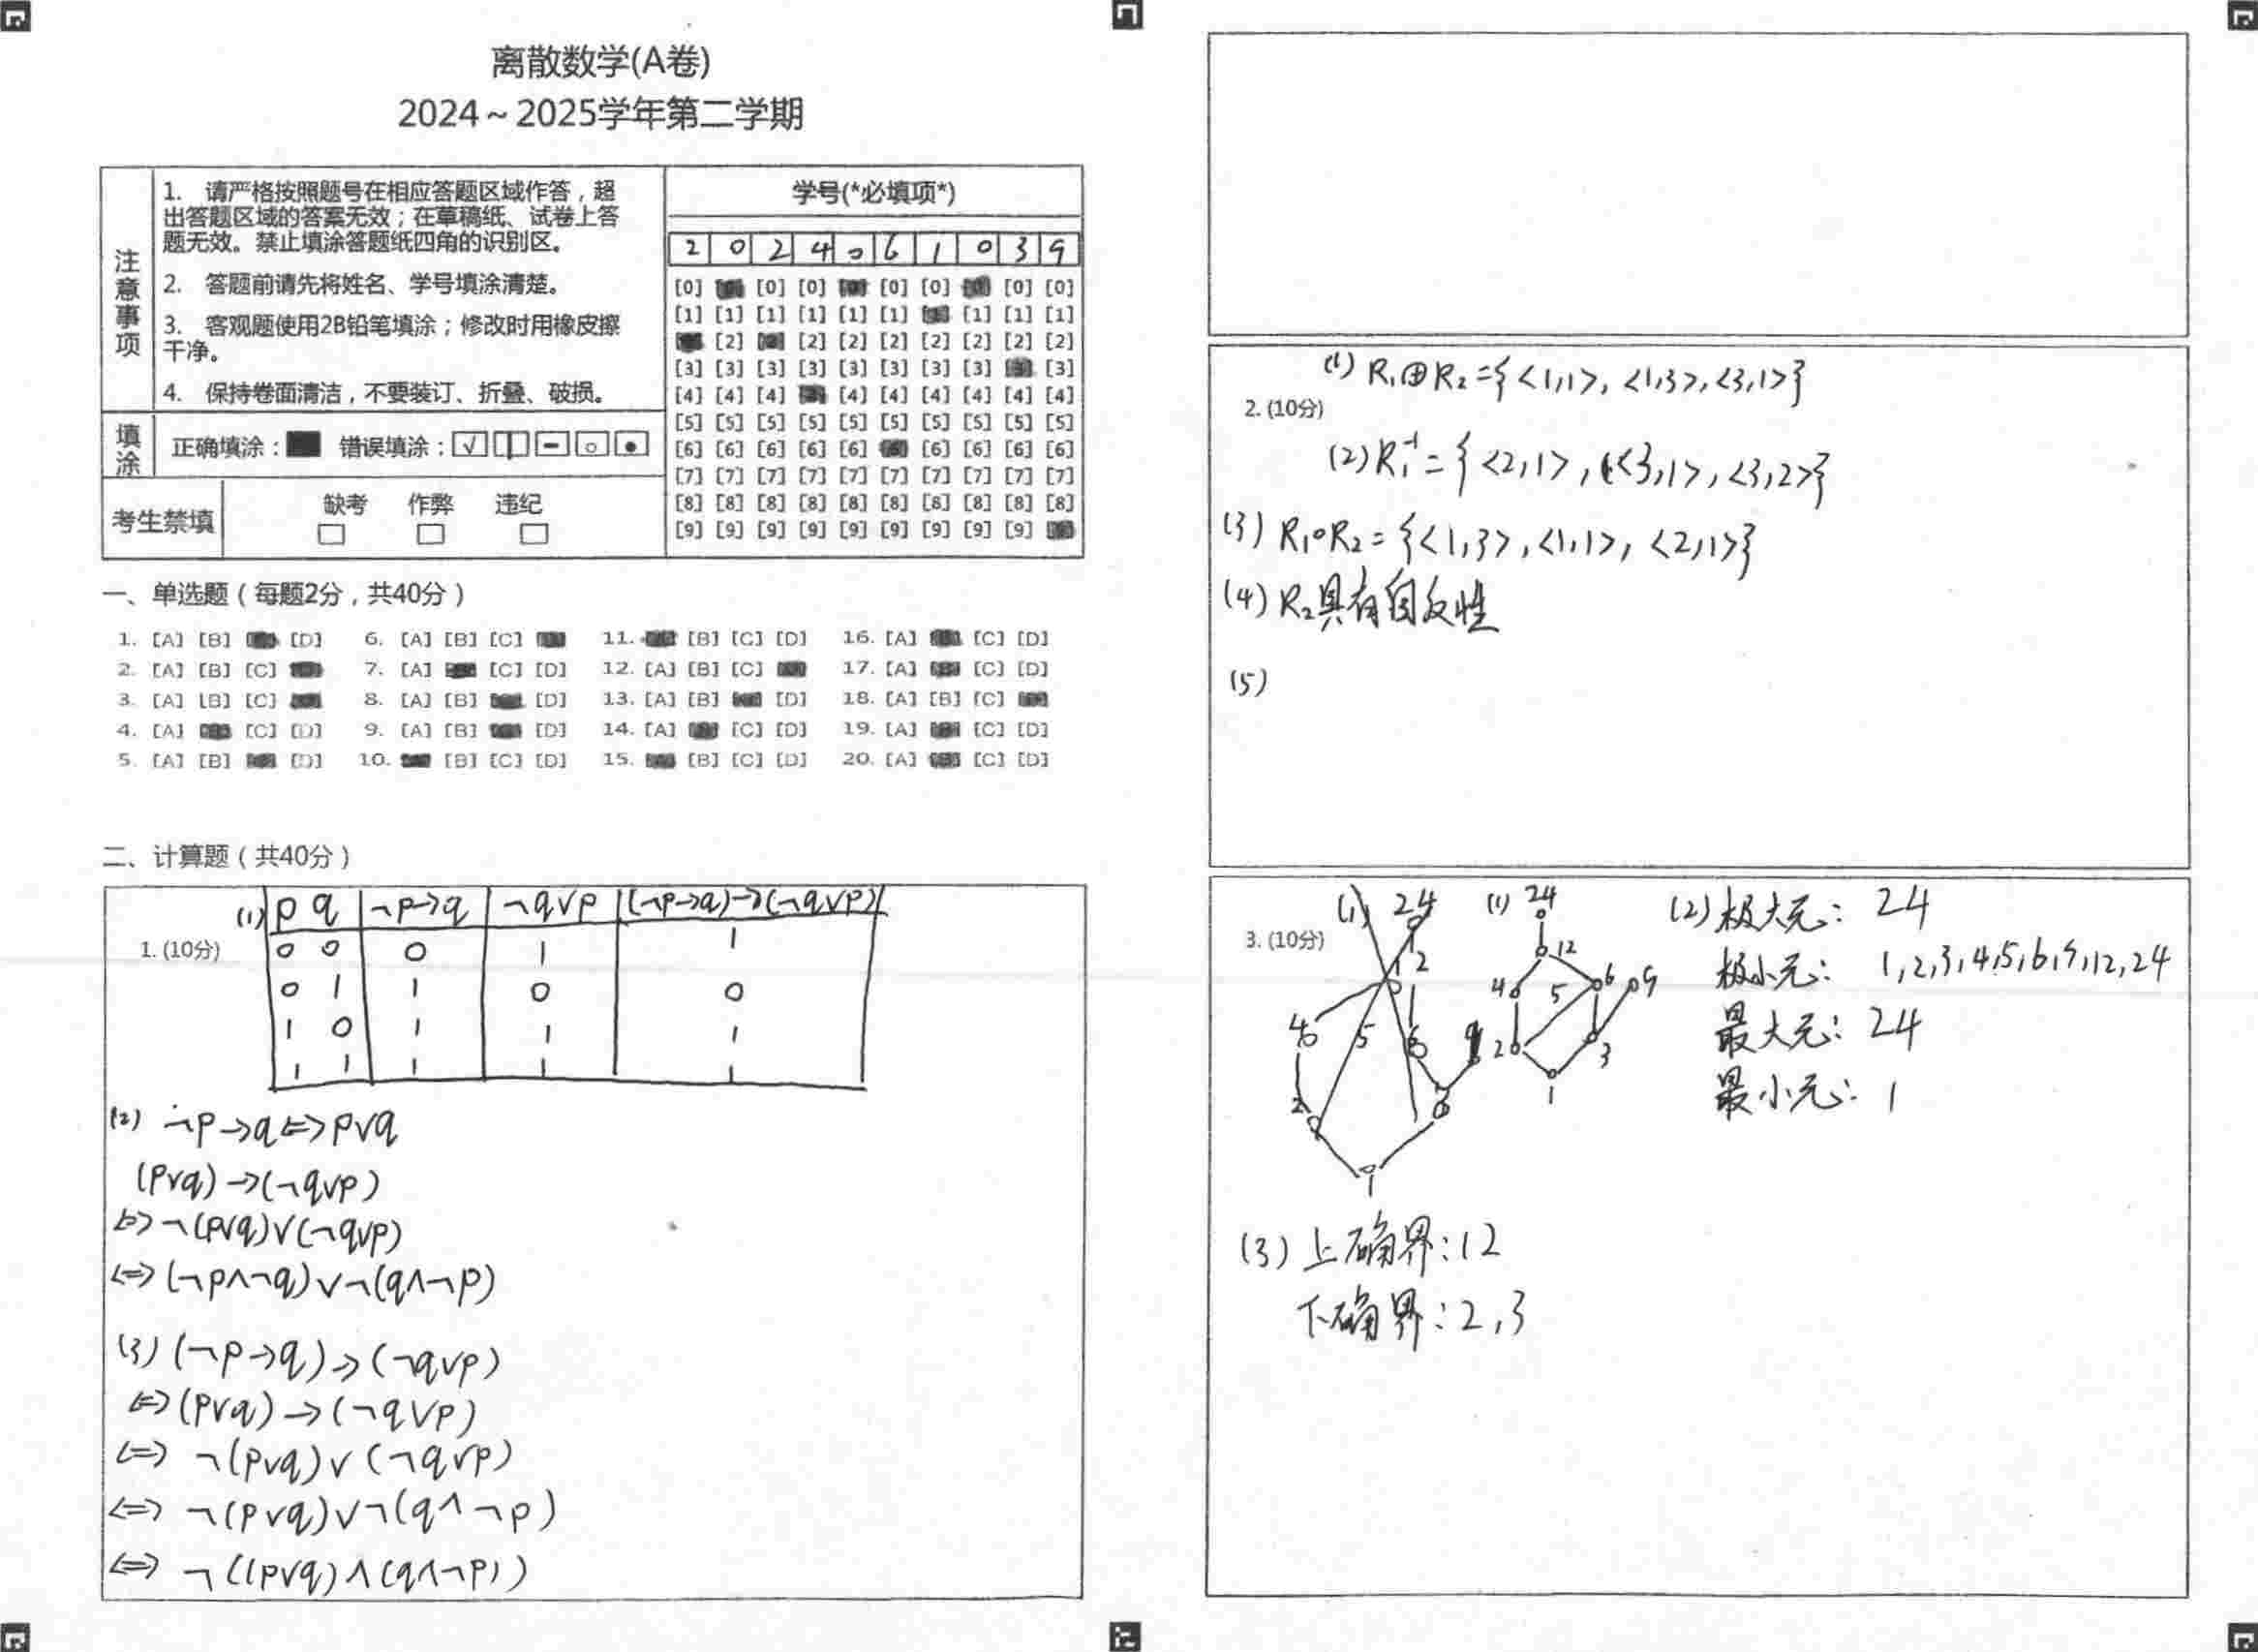 离散数学(A卷)
2024～2025学年第二学期
注意事项
1. 请严格按照题号在相应答题区域作答，超
出答题区域的答案无效；在草稿纸、试卷上答
题无效。禁止填涂答题纸四角的识别区。
2. 答题前请先将姓名、学号填涂清楚。
3. 客观题使用2B铅笔填涂；修改时用橡皮擦
干净。
4. 保持卷面清洁，不要装订、折叠、破损。
填涂 正确填涂： 错误填涂：
考生禁填 缺考 作弊 违纪
学号(*必填项*)
2 0 2 4 0 6 1 0 3 9
[0] [0] [0] [0] [0] [0] [0]
[1] [1] [1] [1] [1] [1] [1] [1] [1]
[2] [2] [2] [2] [2] [2] [2] [2]
[3] [3] [3] [3] [3] [3] [3] [3] [3]
[4] [4] [4] [4] [4] [4] [4] [4] [4]
[5] [5] [5] [5] [5] [5] [5] [5] [5] [5]
[6] [6] [6] [6] [6] [6] [6] [6] [6]
[7] [7] [7] [7] [7] [7] [7] [7] [7] [7]
[8] [8] [8] [8] [8] [8] [8] [8] [8] [8]
[9] [9] [9] [9] [9] [9] [9] [9] [9]
一、单选题（每题2分，共40分）
1. [A] [B] [D] 6. [A] [B] [C] 11. [B] [C] [D] 16. [A] [C] [D]
2. [A] [B] [C] 7. [A] [C] [D] 12. [A] [B] [C] 17. [A] [C] [D]
3. [A] [B] [C] 8. [A] [B] [D] 13. [A] [B] [D] 18. [A] [B] [C]
4. [A] [C] [D] 9. [A] [B] [D] 14. [A] [C] [D] 19. [A] [C] [D]
5. [A] [B] [D] 10. [B] [C] [D] 15. [B] [C] [D] 20. [A] [C] [D]
二、计算题（共40分）
1. (10分)
(1) p q ¬p→q ¬q∨p (¬p→q)→(¬q∨p)
0 0 0 1 1
0 1 1 0 0
1 0 1 1 1
1 1 1 1 1
(2) ¬p→q⇔p∨q
(p∨q)→(¬q∨p)
⇔¬(p∨q)∨(¬q∨p)
⇔(¬p∧¬q)∨¬(q∧¬p)
(3) (¬p→q)→(¬q∨p)
⇔(p∨q)→(¬q∨p)
⇔ ¬(p∨q)∨(¬q∨p)
⇔ ¬(p∨q)∨¬(q∧¬p)
⇔ ¬((p∨q)∧(q∧¬p))
2. (10分)
(1) R₁⊕R₂={<1,1>, <1,3>, <3,1>}
(2) R₁⁻¹={<2,1>, <3,1>, <3,2>}
(3) R₁∘R₂={<1,3>, <1,1>, <2,1>}
(4) R₂具有自反性
(5)
3. (10分)
(1) 24
12
4 5 6
2 3
1
(1) 24
12
4 5 6 9
2 3
1
(2) 极大元：24
极小元：1,2,3,4,5,6,9,12,24
最大元：24
最小元：1
(3) 上确界：12
下确界：2,3